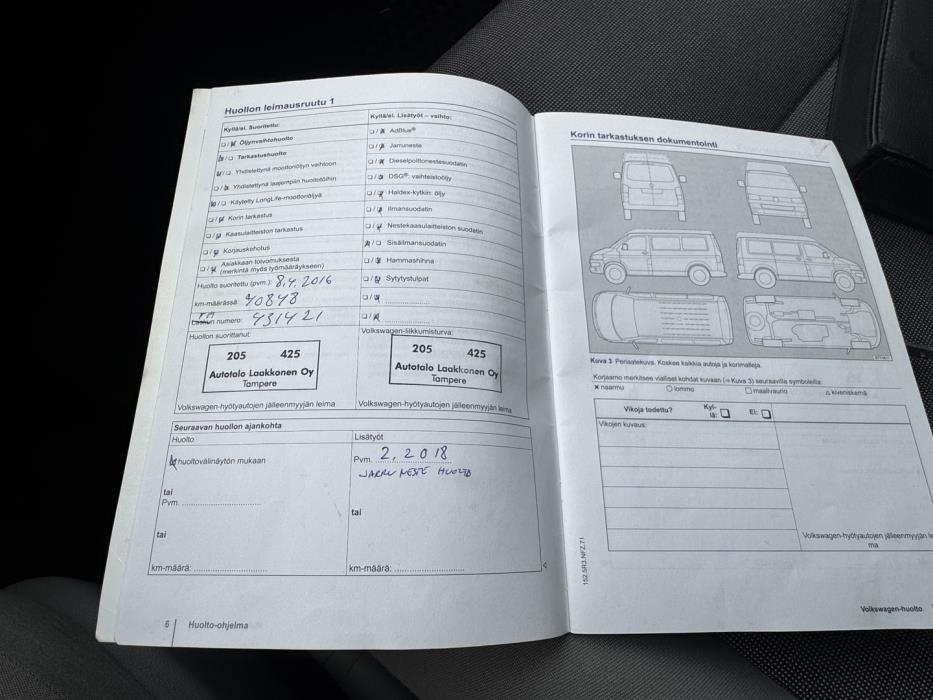 Huollon leimausruutu 1
Kyllä/ei. Suoritettu:
Öljynvaihtohuolto
Tarkastushuolto
Yhdistettynä moottoriöljyn vaihtoon
Yhdistettynä laajempiin huoltotöihin
Käytetty LongLife-moottoriöljyä
Korin tarkastus
Kaasulaitteiston tarkastus
Korjauskehotus
Asiakkaan toivomuksesta
(merkintä myös työmääräykseen)
Huolto suoritettu (pvm.): 8.4.2016
km-määrässä: 40848
numero: 431421
Huollon suorittanut:
205 425
Autotalo Laakkonen Oy
Tampere
Volkswagen-hyötyautojen jälleenmyyjän leima
Kyllä/ei. Lisätyöt – vaihto:
AdBlue®
Jarruneste
Dieselpolttonestesuodatin
DSG®: vaihteistoöljy
Haldex-kytkin: öljy
Ilmansuodatin
Nestekaasulaitteiston suodatin
Sisäilmansuodatin
Hammashihna
Sytytystulpat
Volkswagen-liikkumisturva:
205 425
Autotalo Laakkonen Oy
Tampere
Volkswagen-hyötyautojen jälleenmyyjän leima
Seuraavan huollon ajankohta
Huolto
huoltovälinäytön mukaan
tai
Pvm.
tai
km-määrä:
Lisätyöt
Pvm. 2.2018
JARRUNESTE HUOLTO
tai
km-määrä:
6 Huolto-ohjelma
Korin tarkastuksen dokumentointi
Kuva 3 Periaatekuva. Koskee kaikkia autoja ja korimalleja.
Korjaamo merkitsee vialliset kohdat kuvaan (⇒Kuva 3) seuraavilla symboleilla:
× naarmu ○ lommo □ maalivaurio △ kiveniskemä
Vikoja todettu? Kyl-
lä: Ei:
Vikojen kuvaus:
Volkswagen-hyötyautojen jälleenmyyjän lei
ma
152.5R3.NFZ.71
Volkswagen-huolto